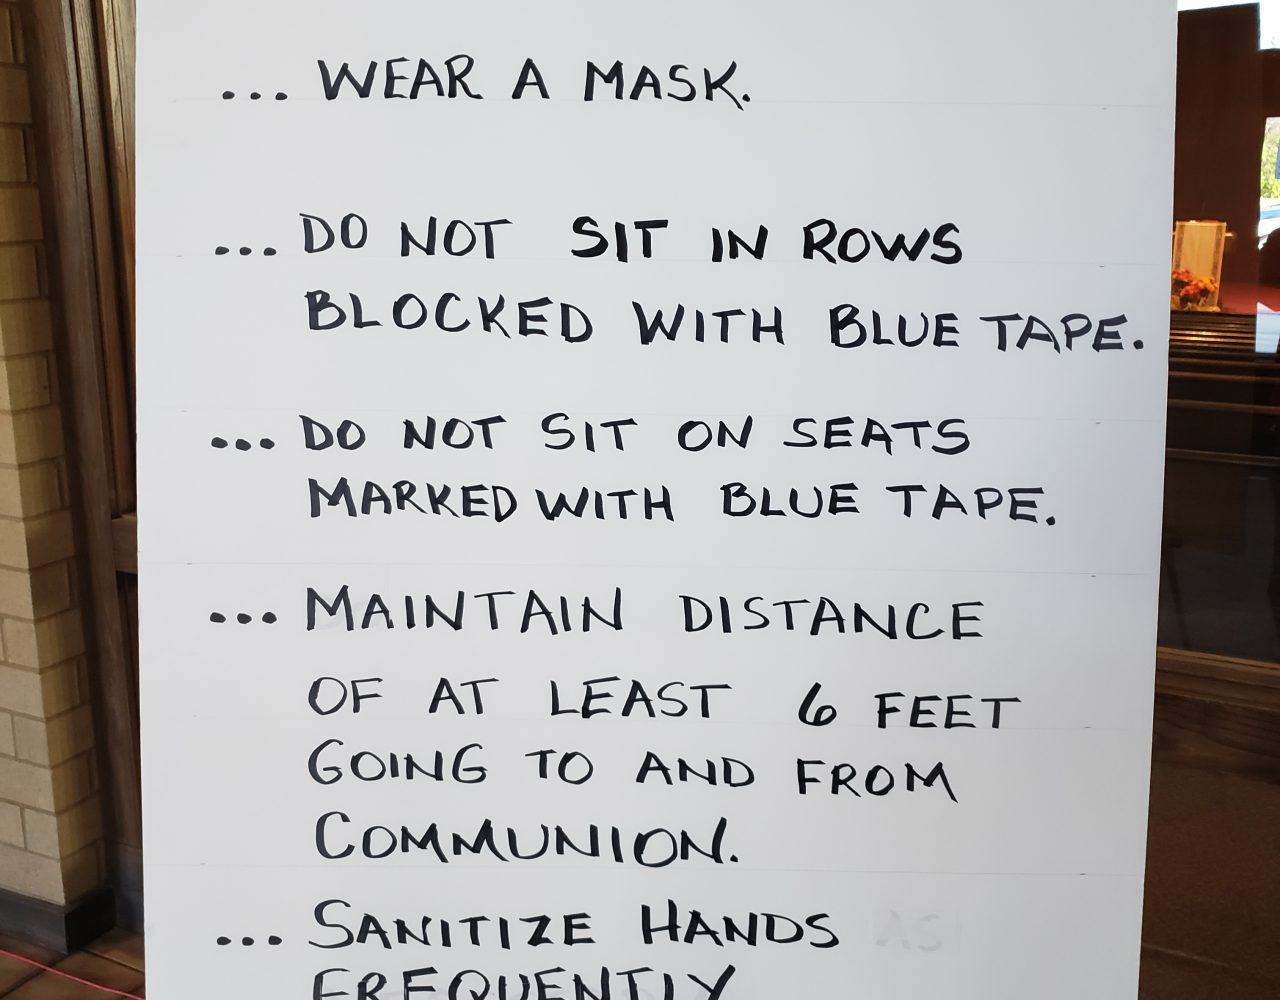 ... WEAR A MASK.
... DO NOT SIT IN ROWS
BLOCKED WITH BLUE TAPE.
... DO NOT SIT ON SEATS
MARKED WITH BLUE TAPE.
... MAINTAIN DISTANCE
OF AT LEAST 6 FEET
GOING TO AND FROM
COMMUNION.
... SANITIZE HANDS AS
FREQUENTLY